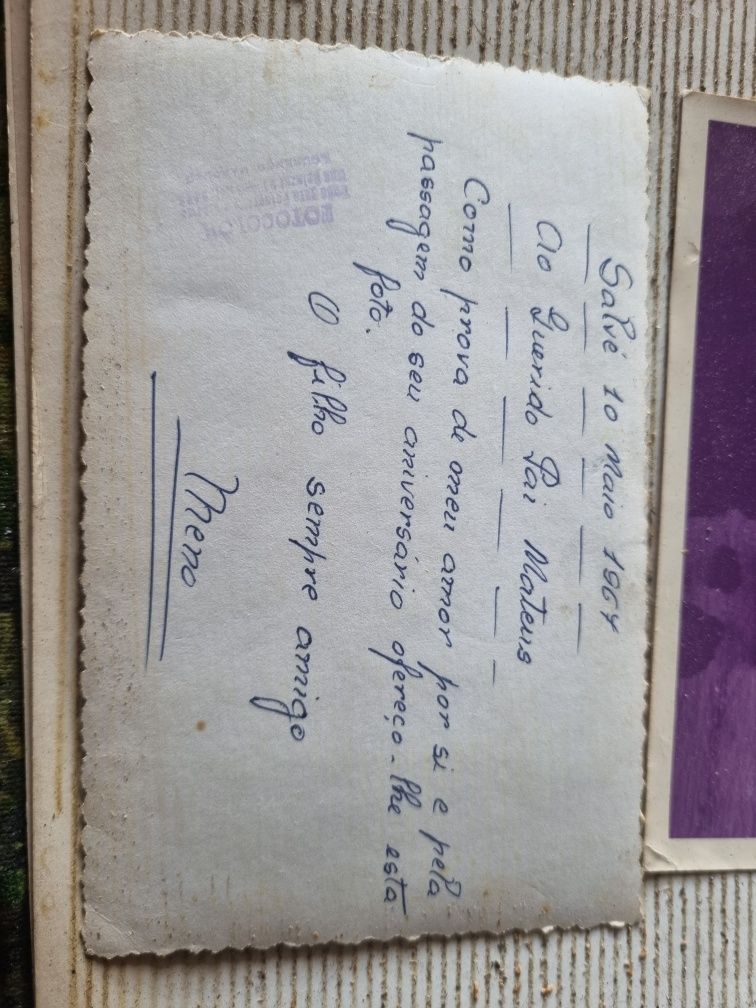 Salvé 10 Maio 1964
Ao Querido Pai Mateus
Como prova de meu amor por si e pela
passagem do seu aniversário ofereço-lhe esta
foto.
O filho sempre amigo
Neno
FOTOCOLOR